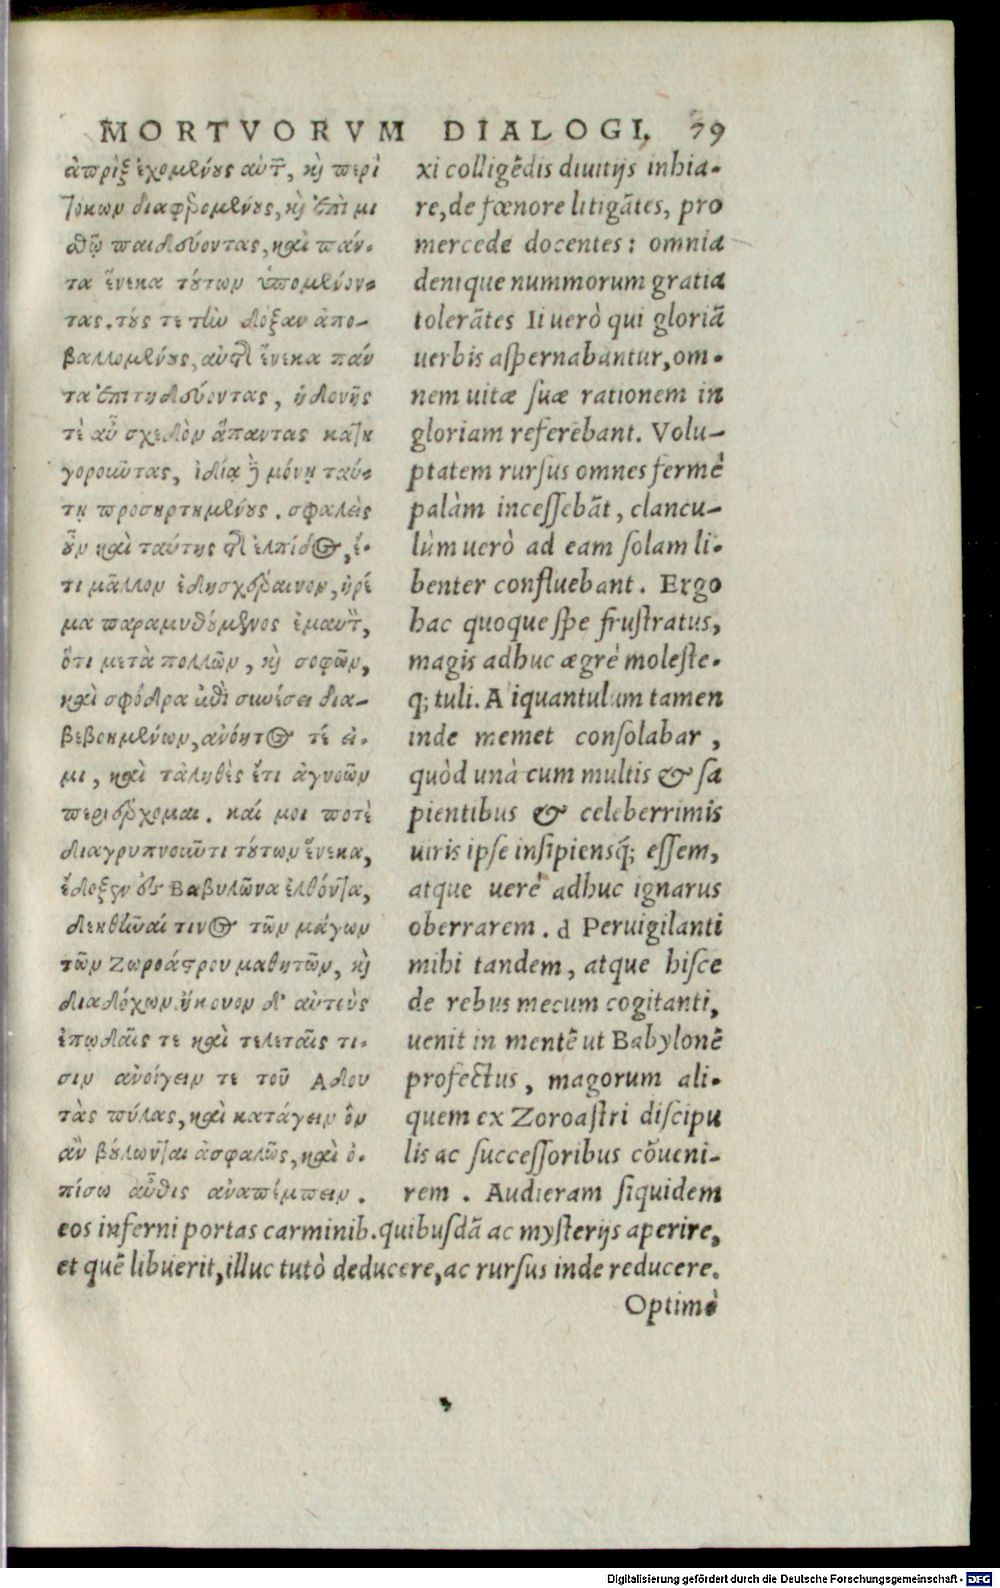 MORTVORVM DIALOGI. 79
ἀπρὶξ ἐχομένους αὐτῶν, καὶ περὶ
τόκων διαφερομένους, καὶ ἐπὶ μι
σθῷ παιδεύοντας, καὶ πάν-
τα ἕνεκα τούτων ὑπομένον-
τας. τούς τε τὴν δόξαν ἀπο-
βαλλομένους, αὐτῆς ἕνεκα πάν
τα ἐπιτηδεύοντας, ἡδονῆς
τὲ αὖ σχεδὸν ἅπαντας κατη
γοροῦντας, ἰδίᾳ δὲ μόνῃ ταύ-
τῃ προσηρτημένους. σφαλεὶς
οὖν καὶ ταύτης τῆς ἐλπίδος, ἔ-
τι μᾶλλον ἐδυσχέραινον, ἠρέ
μα παραμυθούμενος ἐμαυτὸν,
ὅτι μετὰ πολλῶν, καὶ σοφῶν,
καὶ σφόδρα ἐπὶ συνέσει δια-
βεβοημένων, ἀνόητος τέ εἰ-
μι, καὶ τἀληθὲς ἔτι ἀγνοῶν
περιέρχομαι. καί μοι ποτὲ
διαγρυπνοῦντι τούτων ἕνεκα,
ἔδοξεν εἰς Βαβυλῶνα ἐλθόντα,
δεηθῆναί τινος τῶν μάγων
τῶν Ζωροάστρου μαθητῶν, καὶ
διαδόχων. ἤκουον δ' αὐτοὺς
ἐπῳδαῖς τε καὶ τελεταῖς τι-
σιν ἀνοίγειν τε τοῦ Αδου
τὰς πύλας, καὶ κατάγειν ὃν
ἂν βούλωνται ἀσφαλῶς, καὶ ὀ-
πίσω αὖθις ἀναπέμπειν.
xi colligẽdis diuitijs inhia-
re, de fœnore litigãtes, pro
mercede docentes: omnia
denique nummorum gratia
tolerãtes Ii uerò qui gloriã
uerbis aspernabantur, om-
nem uitæ suæ rationem in
gloriam referebant. Volu-
ptatem rursus omnes fermè
palàm incessebãt, clancu-
lùm uerò ad eam solam li-
benter confluebant. Ergo
hac quoque spe frustratus,
magis adhuc ægrè moleste-
q; tuli. Aliquantulum tamen
inde memet consolabar,
quòd unà cum multis & sa
pientibus & celeberrimis
uiris ipse insipiensq; essem,
atque uerè adhuc ignarus
oberrarem. d Peruigilanti
mihi tandem, atque hisce
de rebus mecum cogitanti,
uenit in mentẽ ut Babylonẽ
profectus, magorum ali-
quem ex Zoroastri discipu
lis ac successoribus cõueni-
rem. Audieram siquidem
eos inferni portas carminib. quibusdã ac mysterijs aperire,
et quẽ libuerit, illuc tutò deducere, ac rursus inde reducere.
Optimè
Digitalisierung gefördert durch die Deutsche Forschungsgemeinschaft - DFG